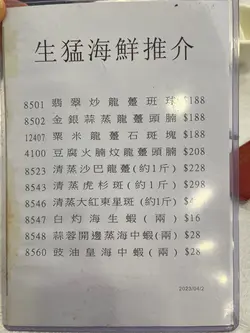 生猛海鮮推介
8501 翡翠炒龍躉斑球 $188
8502 金銀蒜蒸龍躉頭腩 $188
12407 粟米龍躉石斑塊 $188
4100 豆腐火腩炆龍躉頭腩 $208
8523 清蒸沙巴龍躉(約1斤) $228
8543 清蒸虎杉斑(約1斤) $298
8546 清蒸大紅東星斑(約1斤) $4
8547 白灼海生蝦(兩) $16
8548 蒜蓉開邊蒸海中蝦(兩) $28
8560 豉油皇海中蝦(兩) $28
2023/04/2